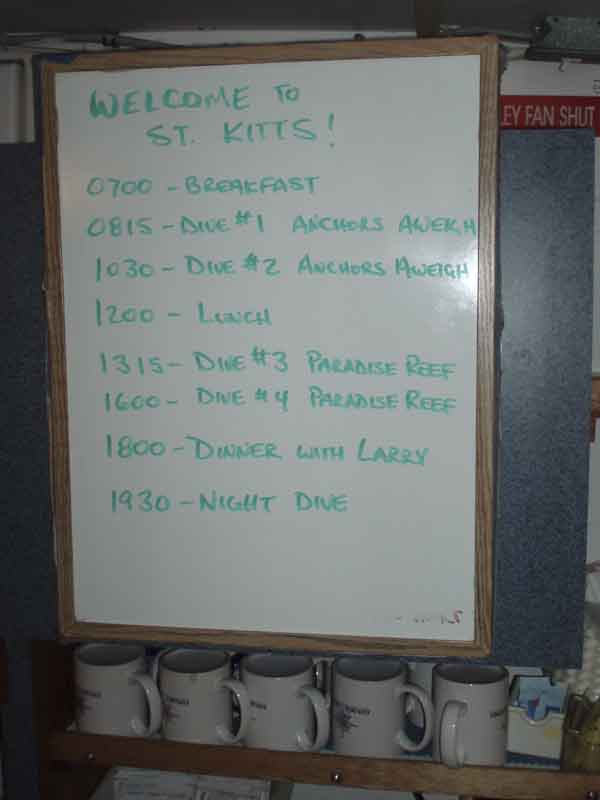 WELCOME TO
ST. KITTS!
0700 - BREAKFAST
0815 - DIVE #1 ANCHORS AWEIGH
1030 - DIVE #2 ANCHORS AWEIGH
1200 - LUNCH
1315 - DIVE #3 PARADISE REEF
1600 - DIVE #4 PARADISE REEF
1800 - DINNER WITH LARRY
1930 - NIGHT DIVE
EY FAN SHUT